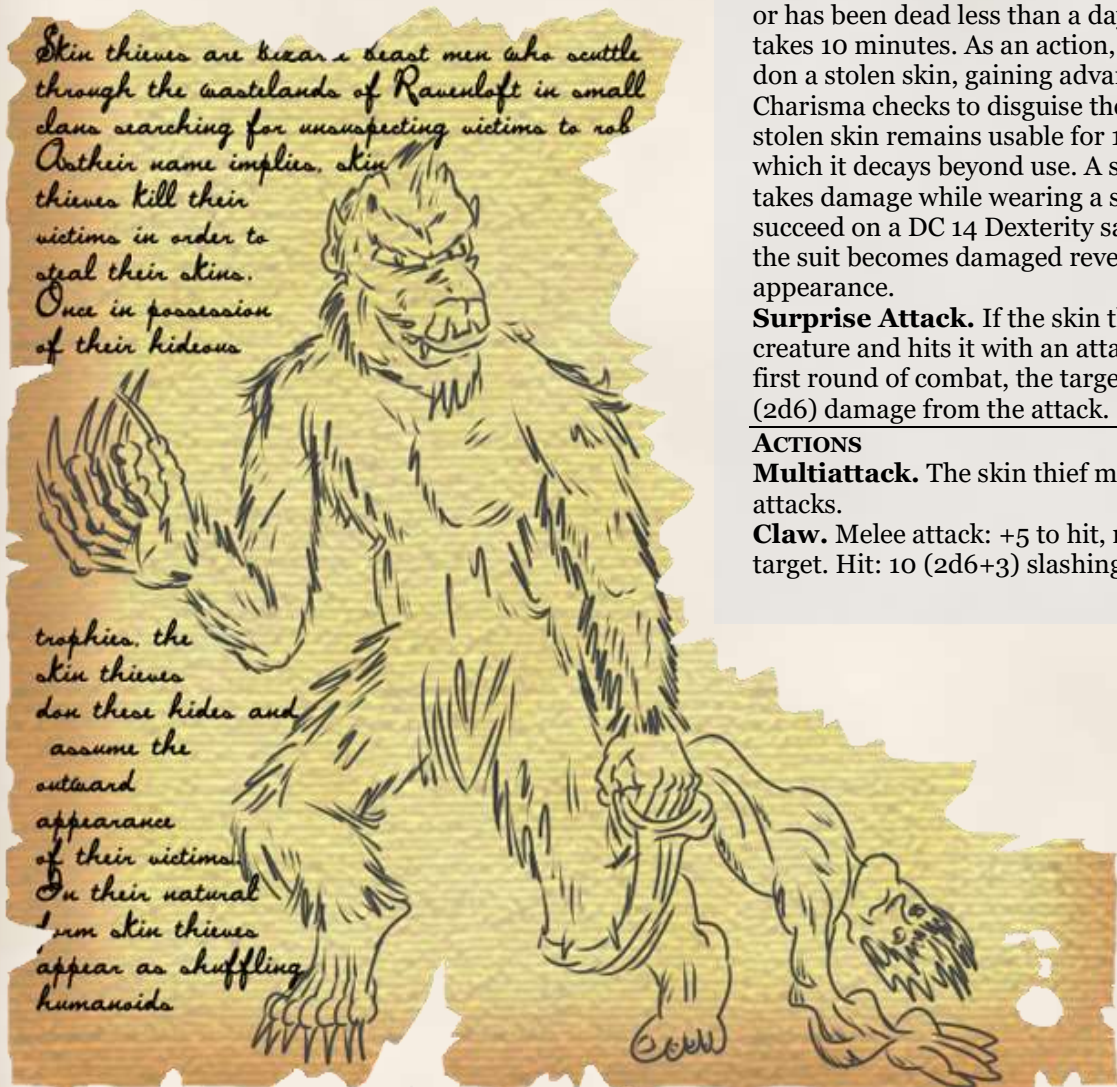 Skin thieves are bizare beast men who scuttle
through the wastelands of Ravenloft in small
clans searching for unsuspecting victims to rob
As their name implies, skin
thieves kill their
victims in order to
steal their skins.
Once in possession
of their hideous
trophies, the
skin thieves
don these hides and
assume the
outward
appearance
of their victims.
In their natural
form skin thieves
appear as shuffling
humanoids
or has been dead less than a da
takes 10 minutes. As an action,
don a stolen skin, gaining adva
Charisma checks to disguise the
stolen skin remains usable for 1
which it decays beyond use. A s
takes damage while wearing a s
succeed on a DC 14 Dexterity sa
the suit becomes damaged reve
appearance.
Surprise Attack. If the skin t
creature and hits it with an atta
first round of combat, the targe
(2d6) damage from the attack.
ACTIONS
Multiattack. The skin thief m
attacks.
Claw. Melee attack: +5 to hit, r
target. Hit: 10 (2d6+3) slashing